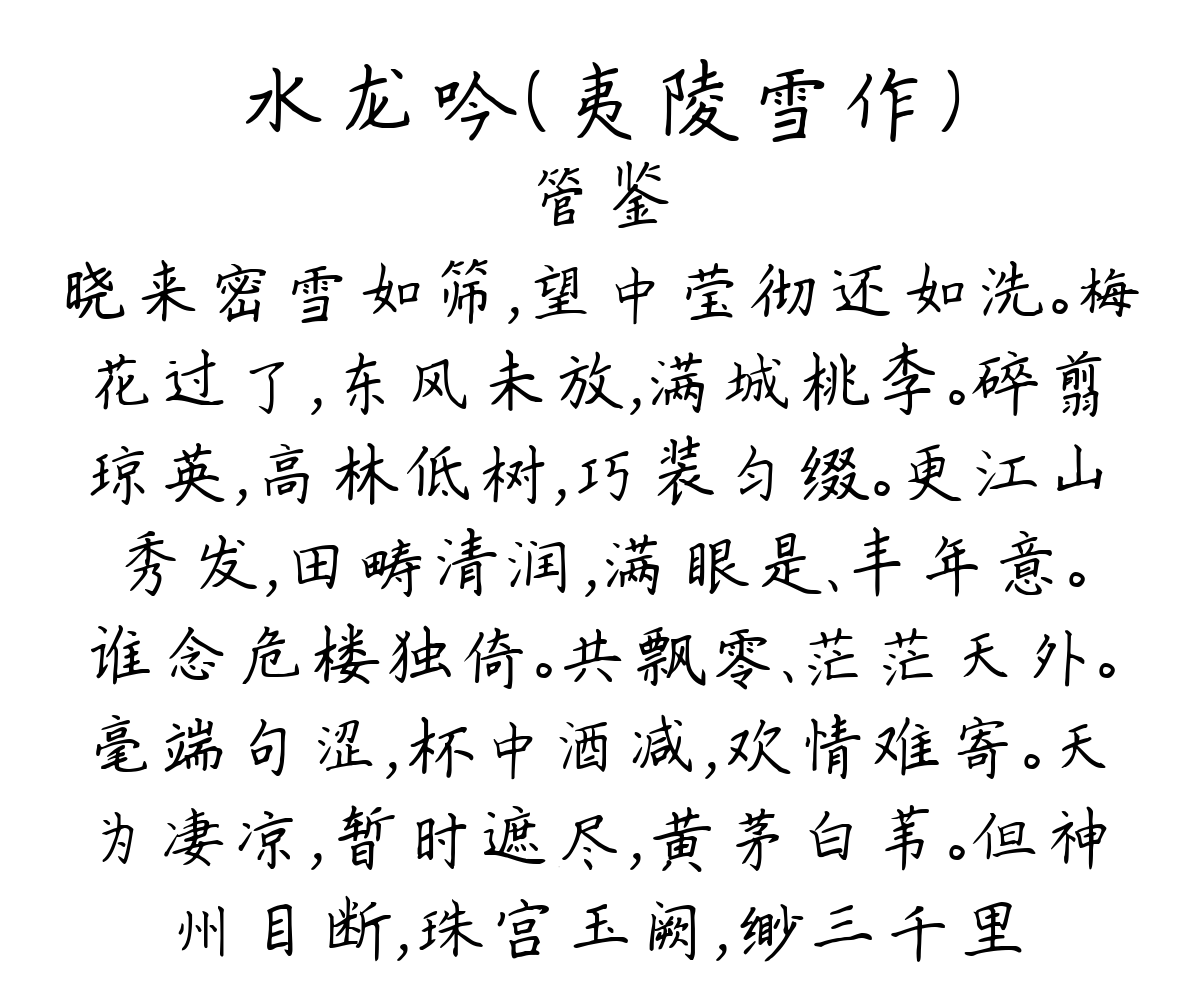 水龙吟(夷陵雪作)
管鉴
晓来密雪如筛,望中莹彻还如洗。梅
花过了,东风未放,满城桃李。碎翦
琼英,高林低树,巧装匀缀。更江山
秀发,田畴清润,满眼是、丰年意。
谁念危楼独倚。共飘零、茫茫天外。
毫端句涩,杯中酒减,欢情难寄。天
为凄凉,暂时遮尽,黄茅白苇。但神
州目断,珠宫玉阙,缈三千里